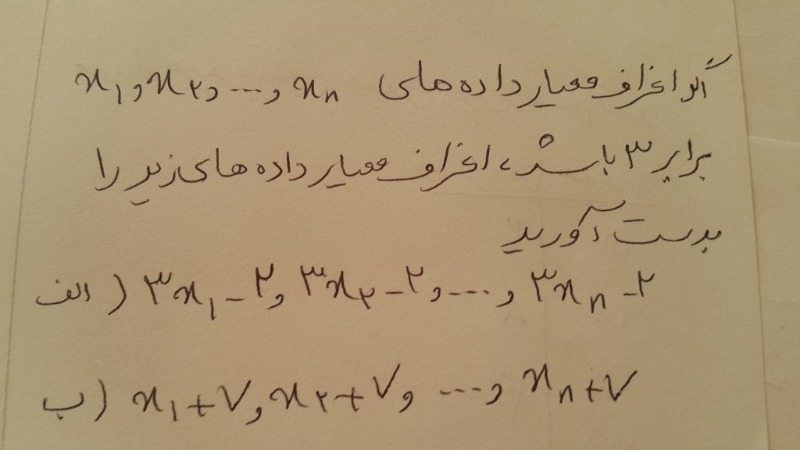 اگر انحراف معیار داده های x₁ و x₂ و ... و xₙ
برابر ۳ باشد، انحراف معیار داده های زیر را
بدست آورید
الف) ۳x₁-۲ و ۳x₂-۲ و ... و ۳xₙ-۲
ب) x₁+۷ و x₂+۷ و ... و xₙ+۷